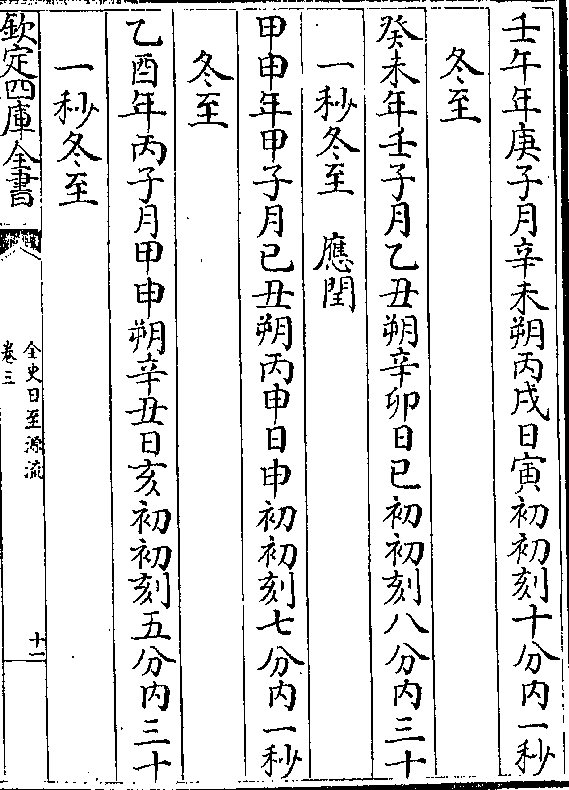 壬午年庚子月辛未朔丙戌日寅初初刻十分内一秒
冬至
癸未年壬子月乙丑朔辛卯日巳初初刻八分内三十
一秒冬至　應閏
甲申年甲子月已丑朔丙申日申初初刻七分内一秒
冬至
乙酉年丙子月甲申朔辛丑日亥初初刻五分内三十
一秒冬至
欽定四庫全書
全史日至源流
卷三
十二